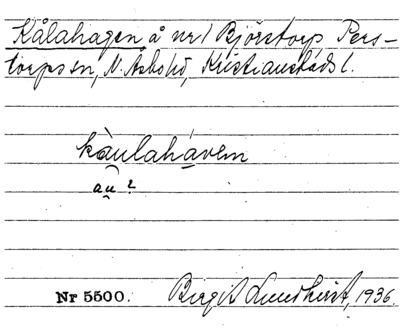 Kålahagen å nr 1 Björstorp Pers-
torps sn, N. Åsbo hd, Kristianstads l.
kàulahávεn
au ?
Nr 5500. Birgit Lundkvist, 1936.